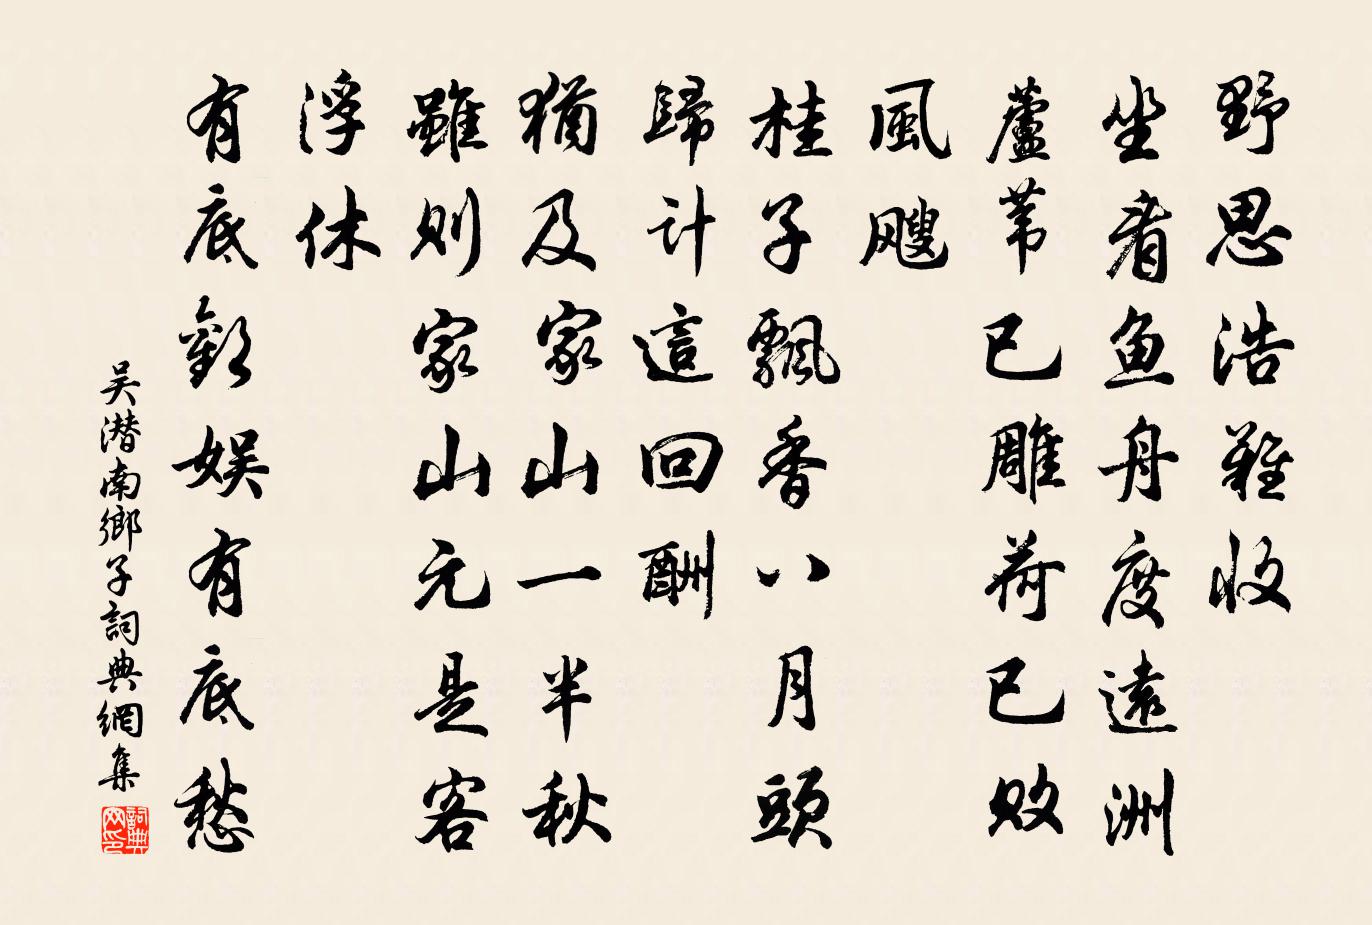 野思浩難收
坐看魚舟度遠洲
蘆葦已雕荷已敗
風颼
桂子飄香八月頭
歸計這回酬
猶及家山一半秋
雖則家山元是客
浮休
有底歡娛有底愁
吴潛南鄉子詞典網集
詞典
网印